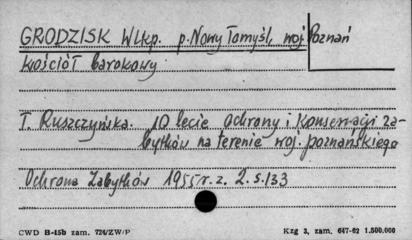 GRODZISK Wlkp. p. Nowy Tomyśl, woj. Poznań
kościół barokowy
T. Ruszczyńska. 10 lecie Ochrony i Konserwacji Za-
bytków na terenie woj. poznańskiego
Ochrona Zabytków 1955 r. z. 2. s. 133
CWD B-15b zam. 724/ZW/P Kzg 3, zam. 647-62 1.500.000